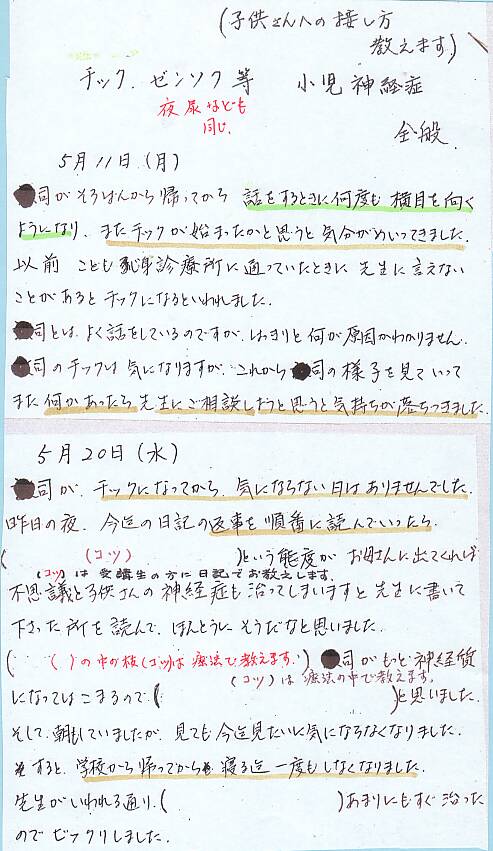 (子供さんへの接し方
教えます)
チック、ゼンソク等 小児神経症
夜尿なども
同じ
全般
5月11日(月)
司がそろばんから帰ってから 話をするときに何度も横目を向く
ようになり、またチックが始まったかと思うと気分がめいってきました。
以前 こども心身診療所に通っていたときに先生に言えない
ことがあるとチックになるといわれました。
司とは、よく話をしているのですが、はっきりと何が原因かわかりません。
司のチックは気になりますが、これから司の様子を見ていって
また何かあったら先生にご相談しようと思うと気持ちが落ちつきました。
5月20日(水)
司が、チックになってから、気にならない日はありませんでした。
昨日の夜、今迄の日記の返事を順番に読んでいったら、
( (コツ) )という態度が お母さんに出てくれば
(コツ)は受講生の方に日記でお教えします。
不思議と子供さんの神経症も治ってしまいますと先生に書いて
下さった所を読んで、ほんとうにそうだなと思いました。
( ( )の中の核(コツ)は療法で教えます。) 司がもっと神経質
(コツ)は療法の中で教えます。
になってはこまるので、( )と思いました。
そして、朝もしていましたが、見ても今迄見たいに気にならなくなりました。
すると、学校から帰ってから 寝る迄一度もしなくなりました。
先生がいわれる通り、( )あまりにもすぐ治った
のでビックリしました。